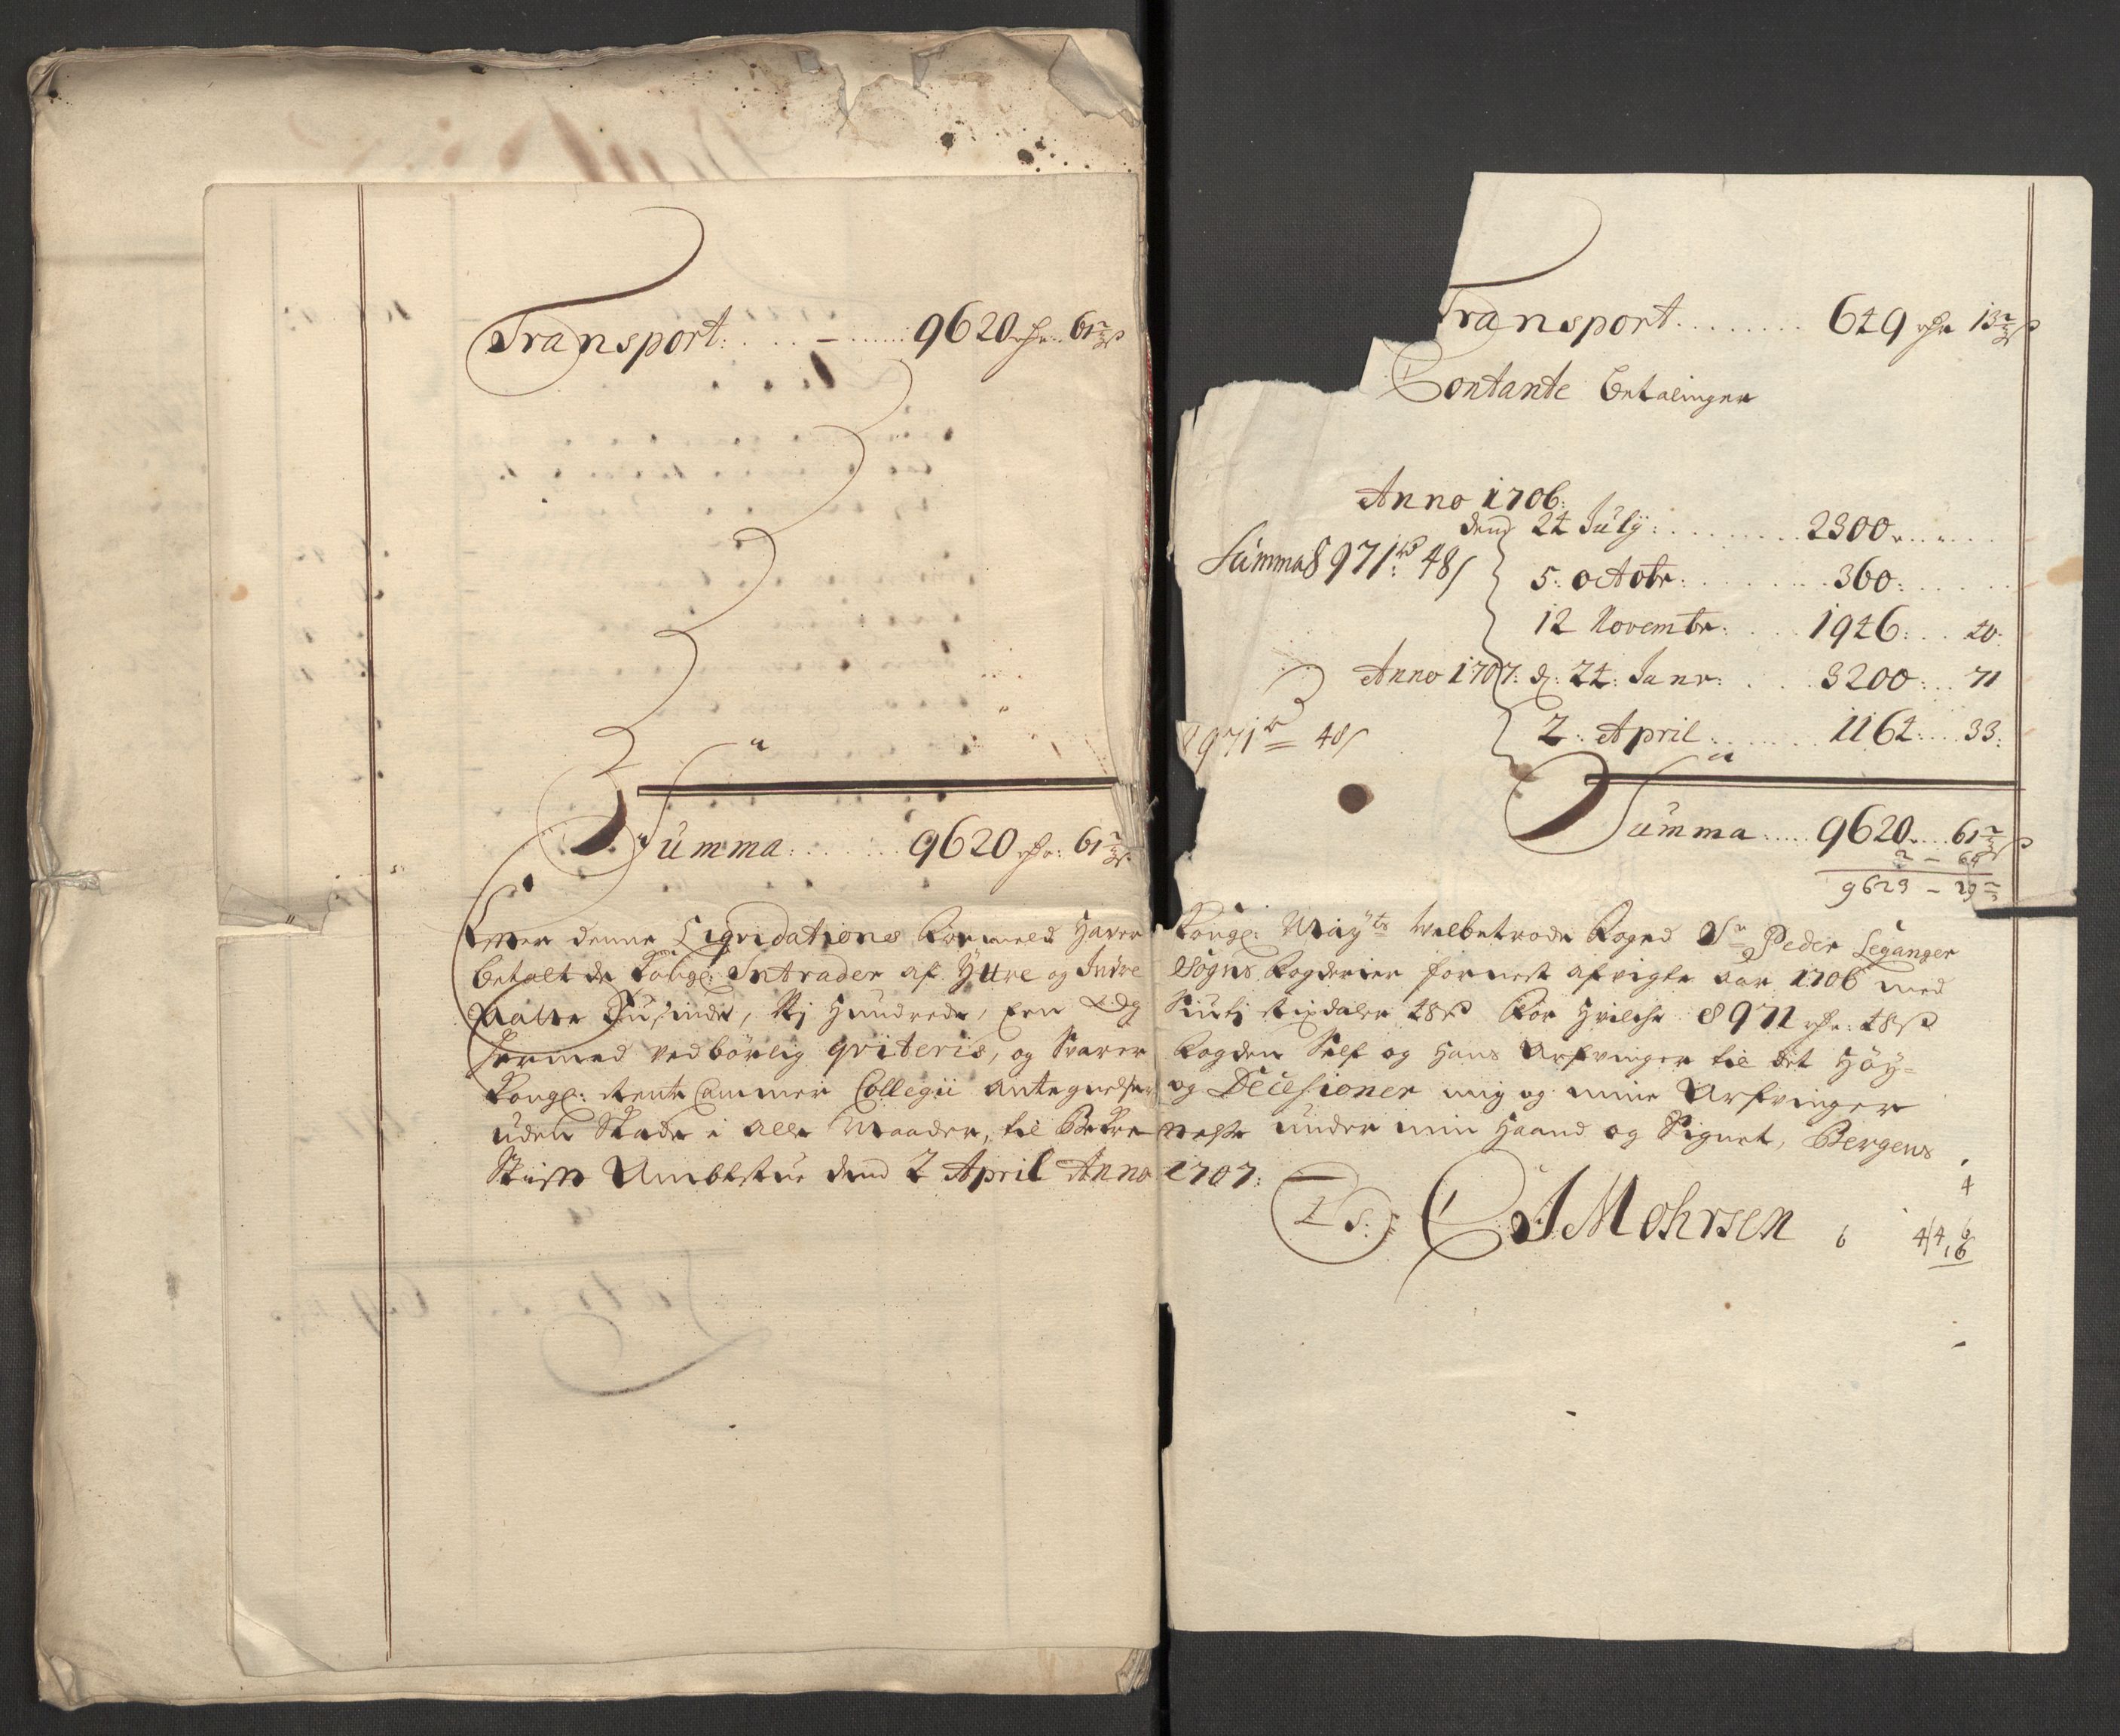 Transport: . . . . – . . . . . . 9620 rdr. 61 7/8 ß
Summa: . . . . . . 9620 rdr: 61 7/8 ß
Transport . . . . . . . . 649 rdr 13 7/8 ß
Contante betalinger
Anno 1706:
dend 24 July: . . . . . . . . . 2300 . . . . .
Summa 8971 rd: 48 ß
5: octobr: . . . . . . . . 360: . . . . . .
12 Novembr: . . . 1946: . . 40:
Anno 1707: d: 24: Janr: . . . 3200: . . 71
8971 rd 48 ß
2: April: . . . . . . . 1164: . . . 33:
Summa . . . . 9620 . . . . 61 7/8 ß
2 – 64
9623 – 29
Efter denne Liqvidations Formeld Hafver Kongl: May:ts Velbetrode Foged Sr Peder Leganger
betalt de Kongl: Intrader af Yttre og Indre Sogns Fogderier for nest afvigte aar 1706 med
Aatte Tusinde, Nj Hundrede, Een & Siutj Rixdaler 48 ß For Hvilche 8971 rdr: 48 ß
hermed vedbörlig qviteris, og Svarer Fogden Self og Hans Arfvinger til det Höy-
Kongl: Rente Cammer Collegii Antegnelser og Decesioner mig og mine Arfvinger
uden Skade i Alle Maader, til Bekreftelse under min Haand og Signet, Bergens
Stifts Ambtstue dend 2 April Anno 1707:
L S: C J Mohrsen
4
6 4/4, 6
6